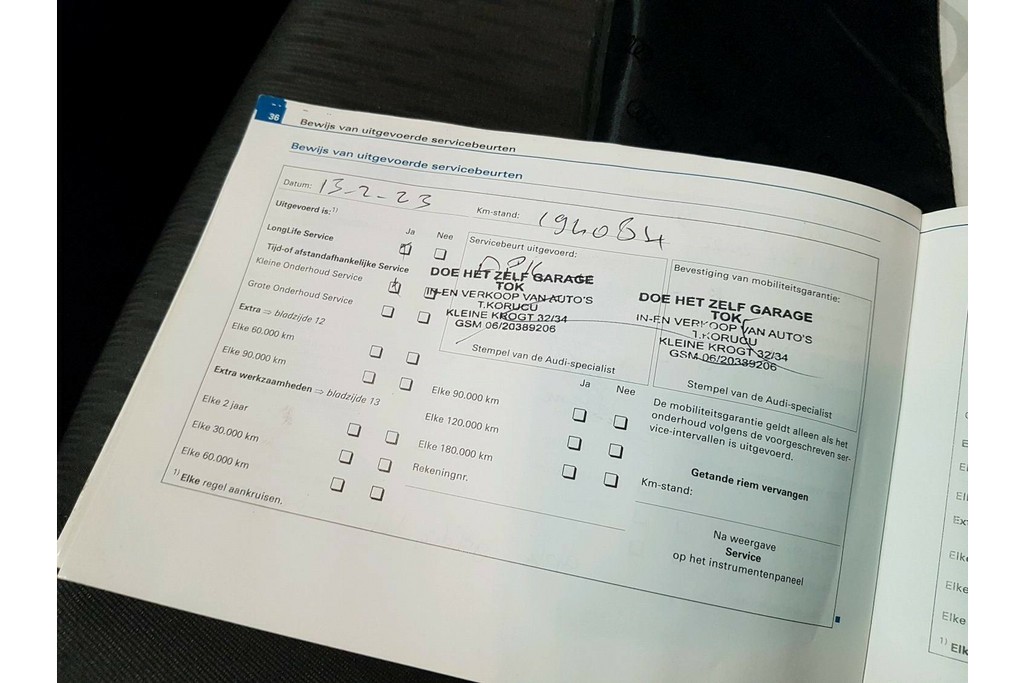 36
Bewijs van uitgevoerde servicebeurten
Bewijs van uitgevoerde servicebeurten
Datum: 13-2-23
Km-stand: 194084
Uitgevoerd is:¹⁾
Ja Nee
LongLife Service
Tijd-of afstandafhankelijke Service
Kleine Onderhoud Service
Grote Onderhoud Service
Extra ⇒ bladzijde 12
Elke 60.000 km
Elke 90.000 km
Extra werkzaamheden ⇒ bladzijde 13
Elke 2 jaar
Elke 30.000 km
Elke 60.000 km
¹⁾ Elke regel aankruisen.
Servicebeurt uitgevoerd:
DOE HET ZELF GARAGE
TOK
IN-EN VERKOOP VAN AUTO'S
T.KORUCU
KLEINE KROGT 32/34
GSM 06/20389206
Stempel van de Audi-specialist
Ja Nee
Elke 90.000 km
Elke 120.000 km
Elke 180.000 km
Rekeningnr.
Bevestiging van mobiliteitsgarantie:
DOE HET ZELF GARAGE
TOK
IN-EN VERKOOP VAN AUTO'S
T.KORUCU
KLEINE KROGT 32/34
GSM 06/20389206
Stempel van de Audi-specialist
De mobiliteitsgarantie geldt alleen als het
onderhoud volgens de voorgeschreven ser-
vice-intervallen is uitgevoerd.
Getande riem vervangen
Km-stand:
Na weergave
Service
op het instrumentenpaneel
Elke
Elke
Elke
¹⁾ Elk